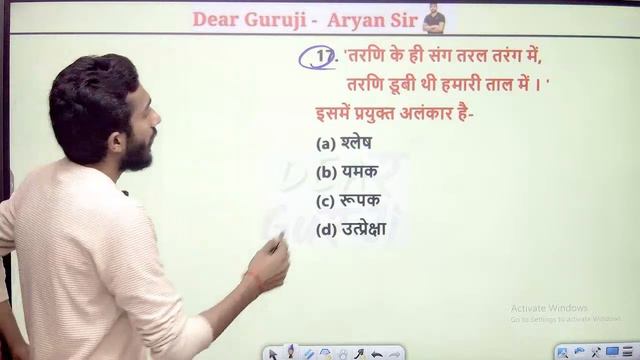 Dear Guruji - Aryan Sir
17. 'तरणि के ही संग तरल तरंग में,
तरणि डूबी थी हमारी ताल में।'
इसमें प्रयुक्त अलंकार है-
(a) श्लेष
(b) यमक
(c) रूपक
(d) उत्प्रेक्षा
DEAR
GURUJI
Activate Windows
Go to Settings to activate Windows.